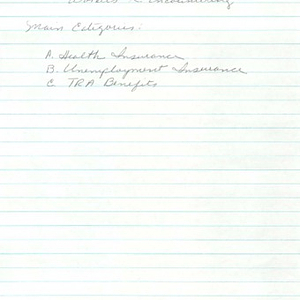 Main Catigories:
A. Health Insurance
B. Unemployment Insurance
C. TRA Benefits